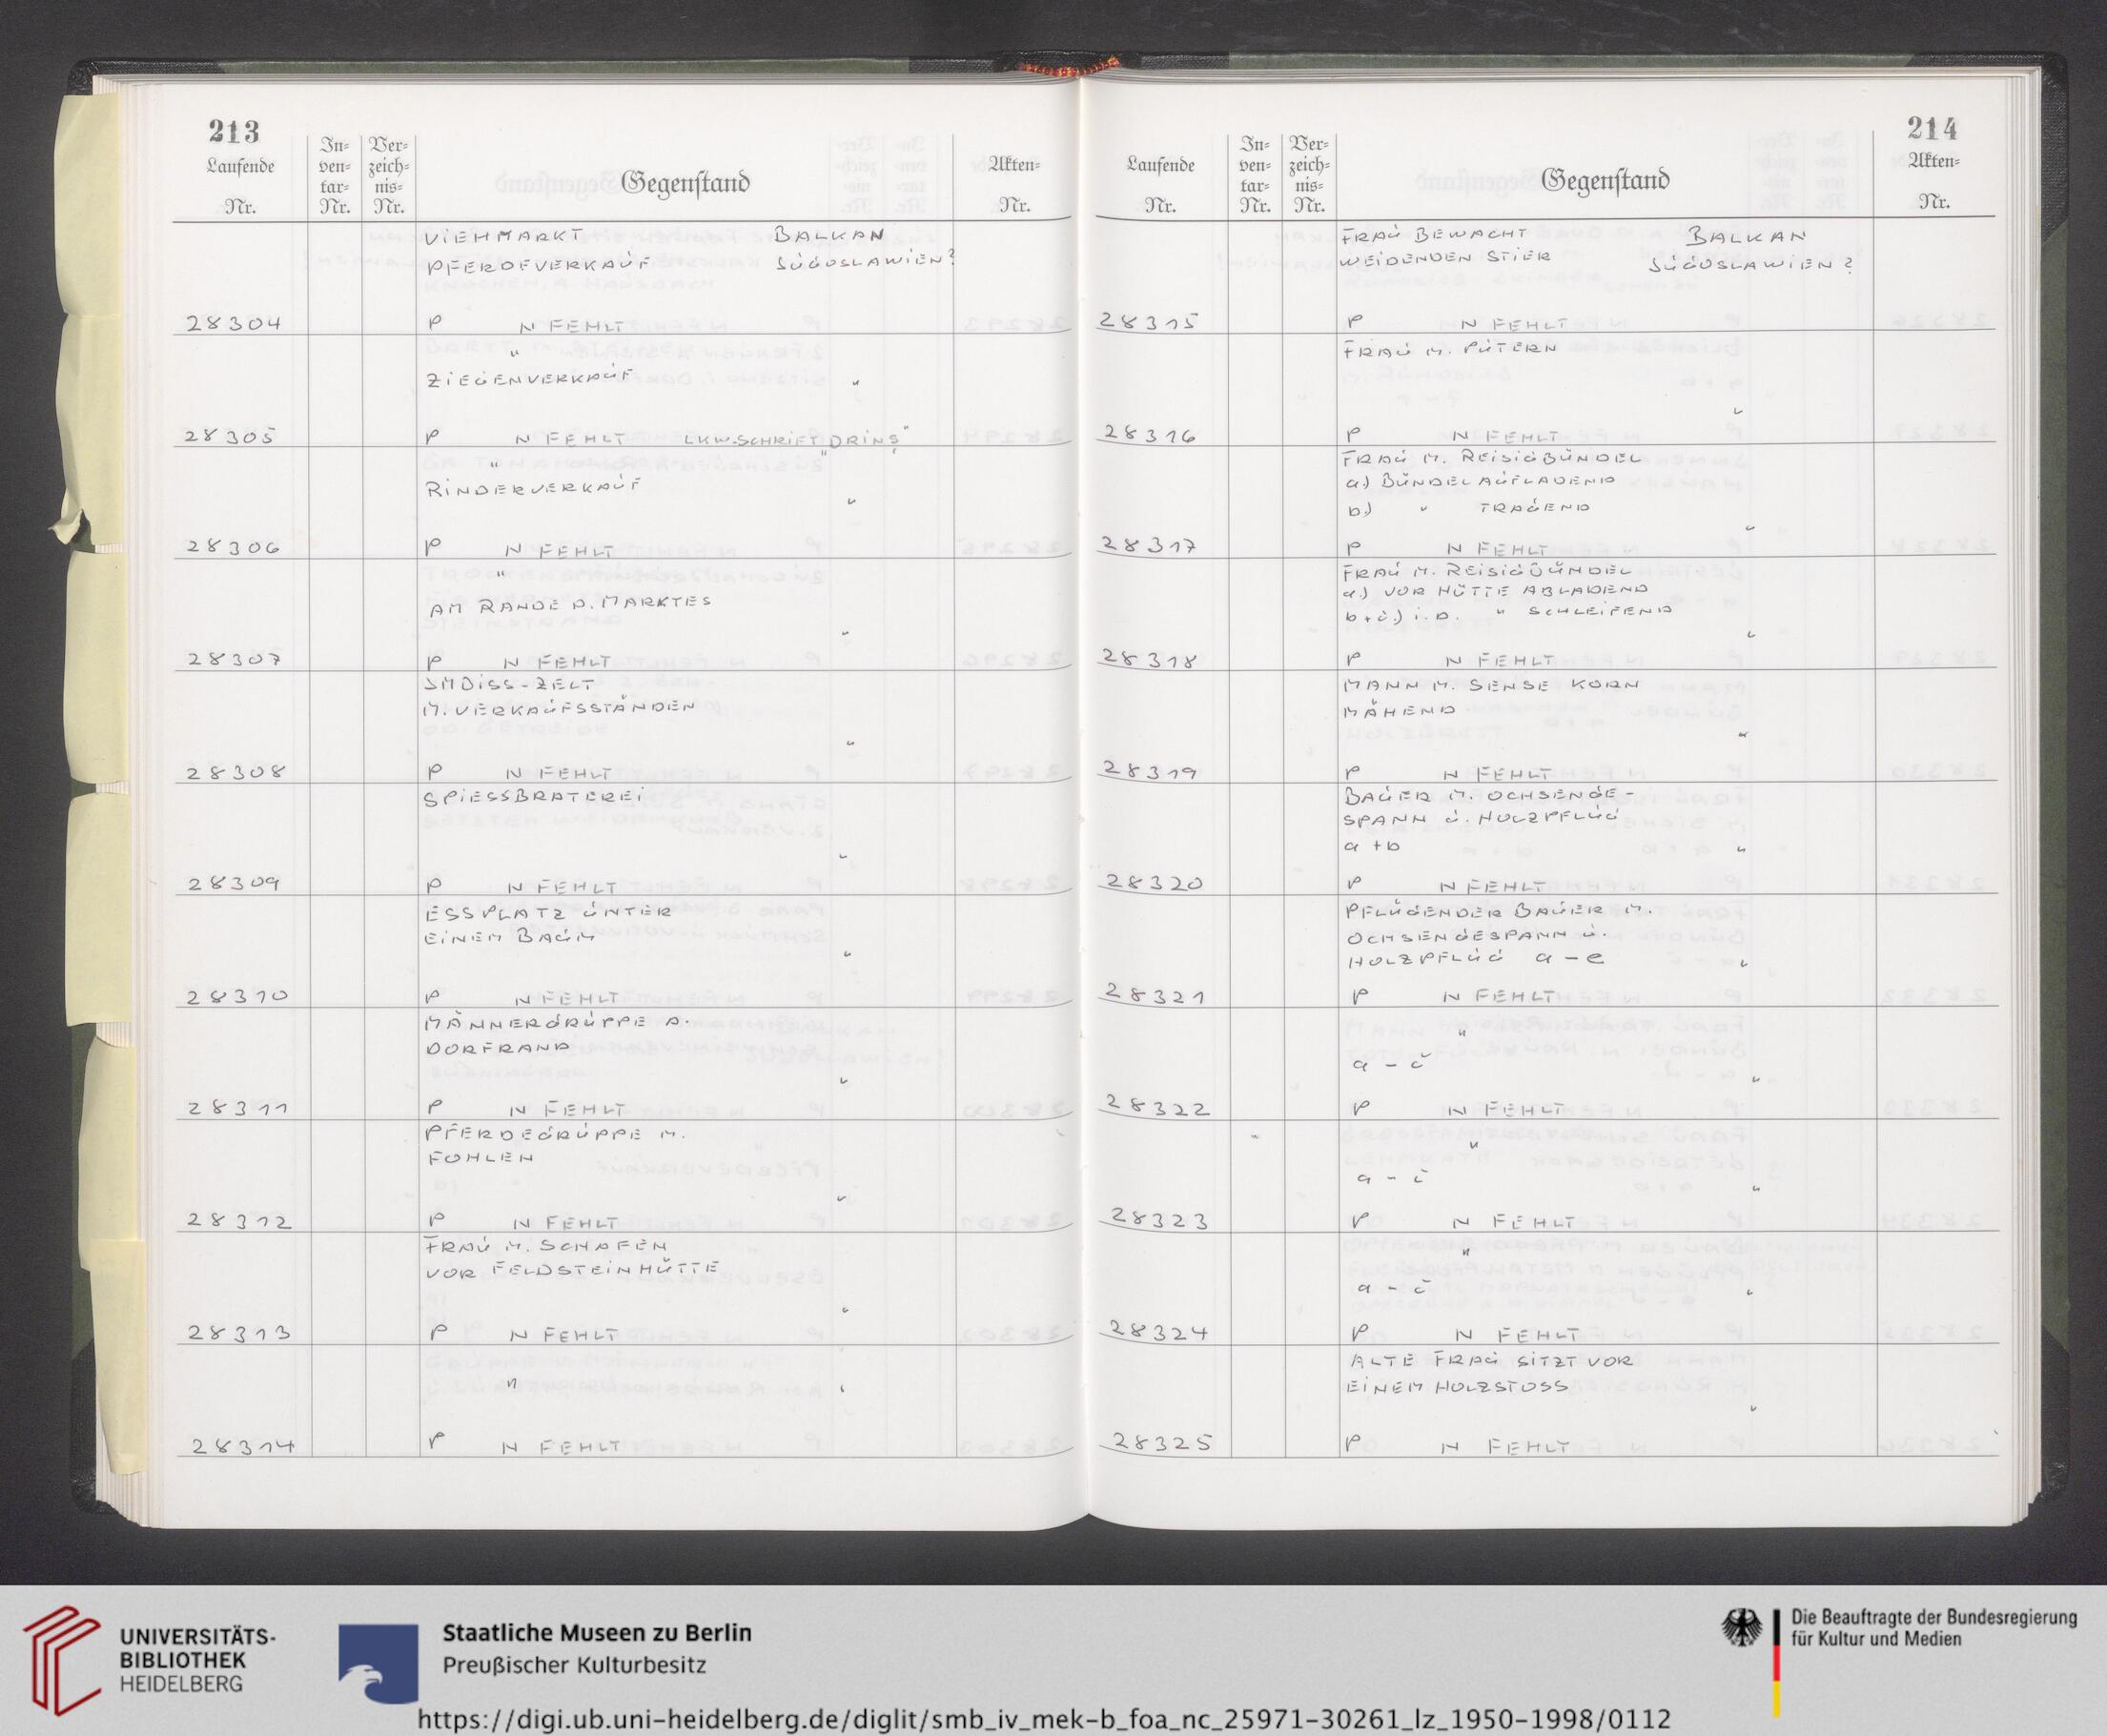 213
Laufende Nr.
Inventar-Nr.
Verzeichnis-Nr.
Gegenstand
Akten-Nr.
VIEHMARKT BALKAN
PFERDEVERKAUF JUGOSLAWIEN?
28304 P N FEHLT
"
ZIEGENVERKAUF "
28305 P N FEHLT LKW-SCHRIFT „DRINŞ"
"
RINDERVERKAUF "
28306 P N FEHLT
"
AM RANDE D. MARKTES
"
28307 P N FEHLT
IMBISS-ZELT
M. VERKAUFSSTÄNDEN
"
28308 P N FEHLT
SPIESSBRATEREI
"
28309 P N FEHLT
ESSPLATZ UNTER
EINEM BAUM
"
28310 P N FEHLT
MÄNNERGRUPPE A.
DORFRAND
"
28311 P N FEHLT
PFERDEGRUPPE M.
FOHLEN
"
28312 P N FEHLT
FRAU M. SCHAFEN
VOR FELDSTEINHÜTTE
"
28313 P N FEHLT
" "
28314 P N FEHLT
214
Laufende Nr.
Inventar-Nr.
Verzeichnis-Nr.
Gegenstand
Akten-Nr.
FRAU BEWACHT BALKAN
WEIDENDEN STIER JUGOSLAWIEN?
28315 P N FEHLT
FRAU M. PUTERN
"
28316 P N FEHLT
FRAU M. REISIGBÜNDEL
a) BÜNDEL AUFLADEND
b) " TRAGEND
"
28317 P N FEHLT
FRAU M. REISIGBÜNDEL
a.) VOR HÜTTE ABLADEND
b+c.) i. D. " SCHLEIFEND
"
28318 P N FEHLT
MANN M. SENSE KORN
MÄHEND
"
28319 P N FEHLT
BAUER M. OCHSENGE-
SPANN U. HOLZPFLUG
a + b "
28320 P N FEHLT
PFLÜGENDER BAUER M.
OCHSENGESPANN U.
HOLZPFLUG a - e "
28321 P N FEHLT
"
a - c "
28322 P N FEHLT
"
a - c "
28323 P N FEHLT
"
a - c "
28324 P N FEHLT
ALTE FRAU SITZT VOR
EINEM HOLZSTOSS
"
28325 P N FEHLT
UNIVERSITÄTS-
BIBLIOTHEK
HEIDELBERG
Staatliche Museen zu Berlin
Preußischer Kulturbesitz
Die Beauftragte der Bundesregierung
für Kultur und Medien
https://digi.ub.uni-heidelberg.de/diglit/smb_iv_mek-b_foa_nc_25971-30261_lz_1950-1998/0112